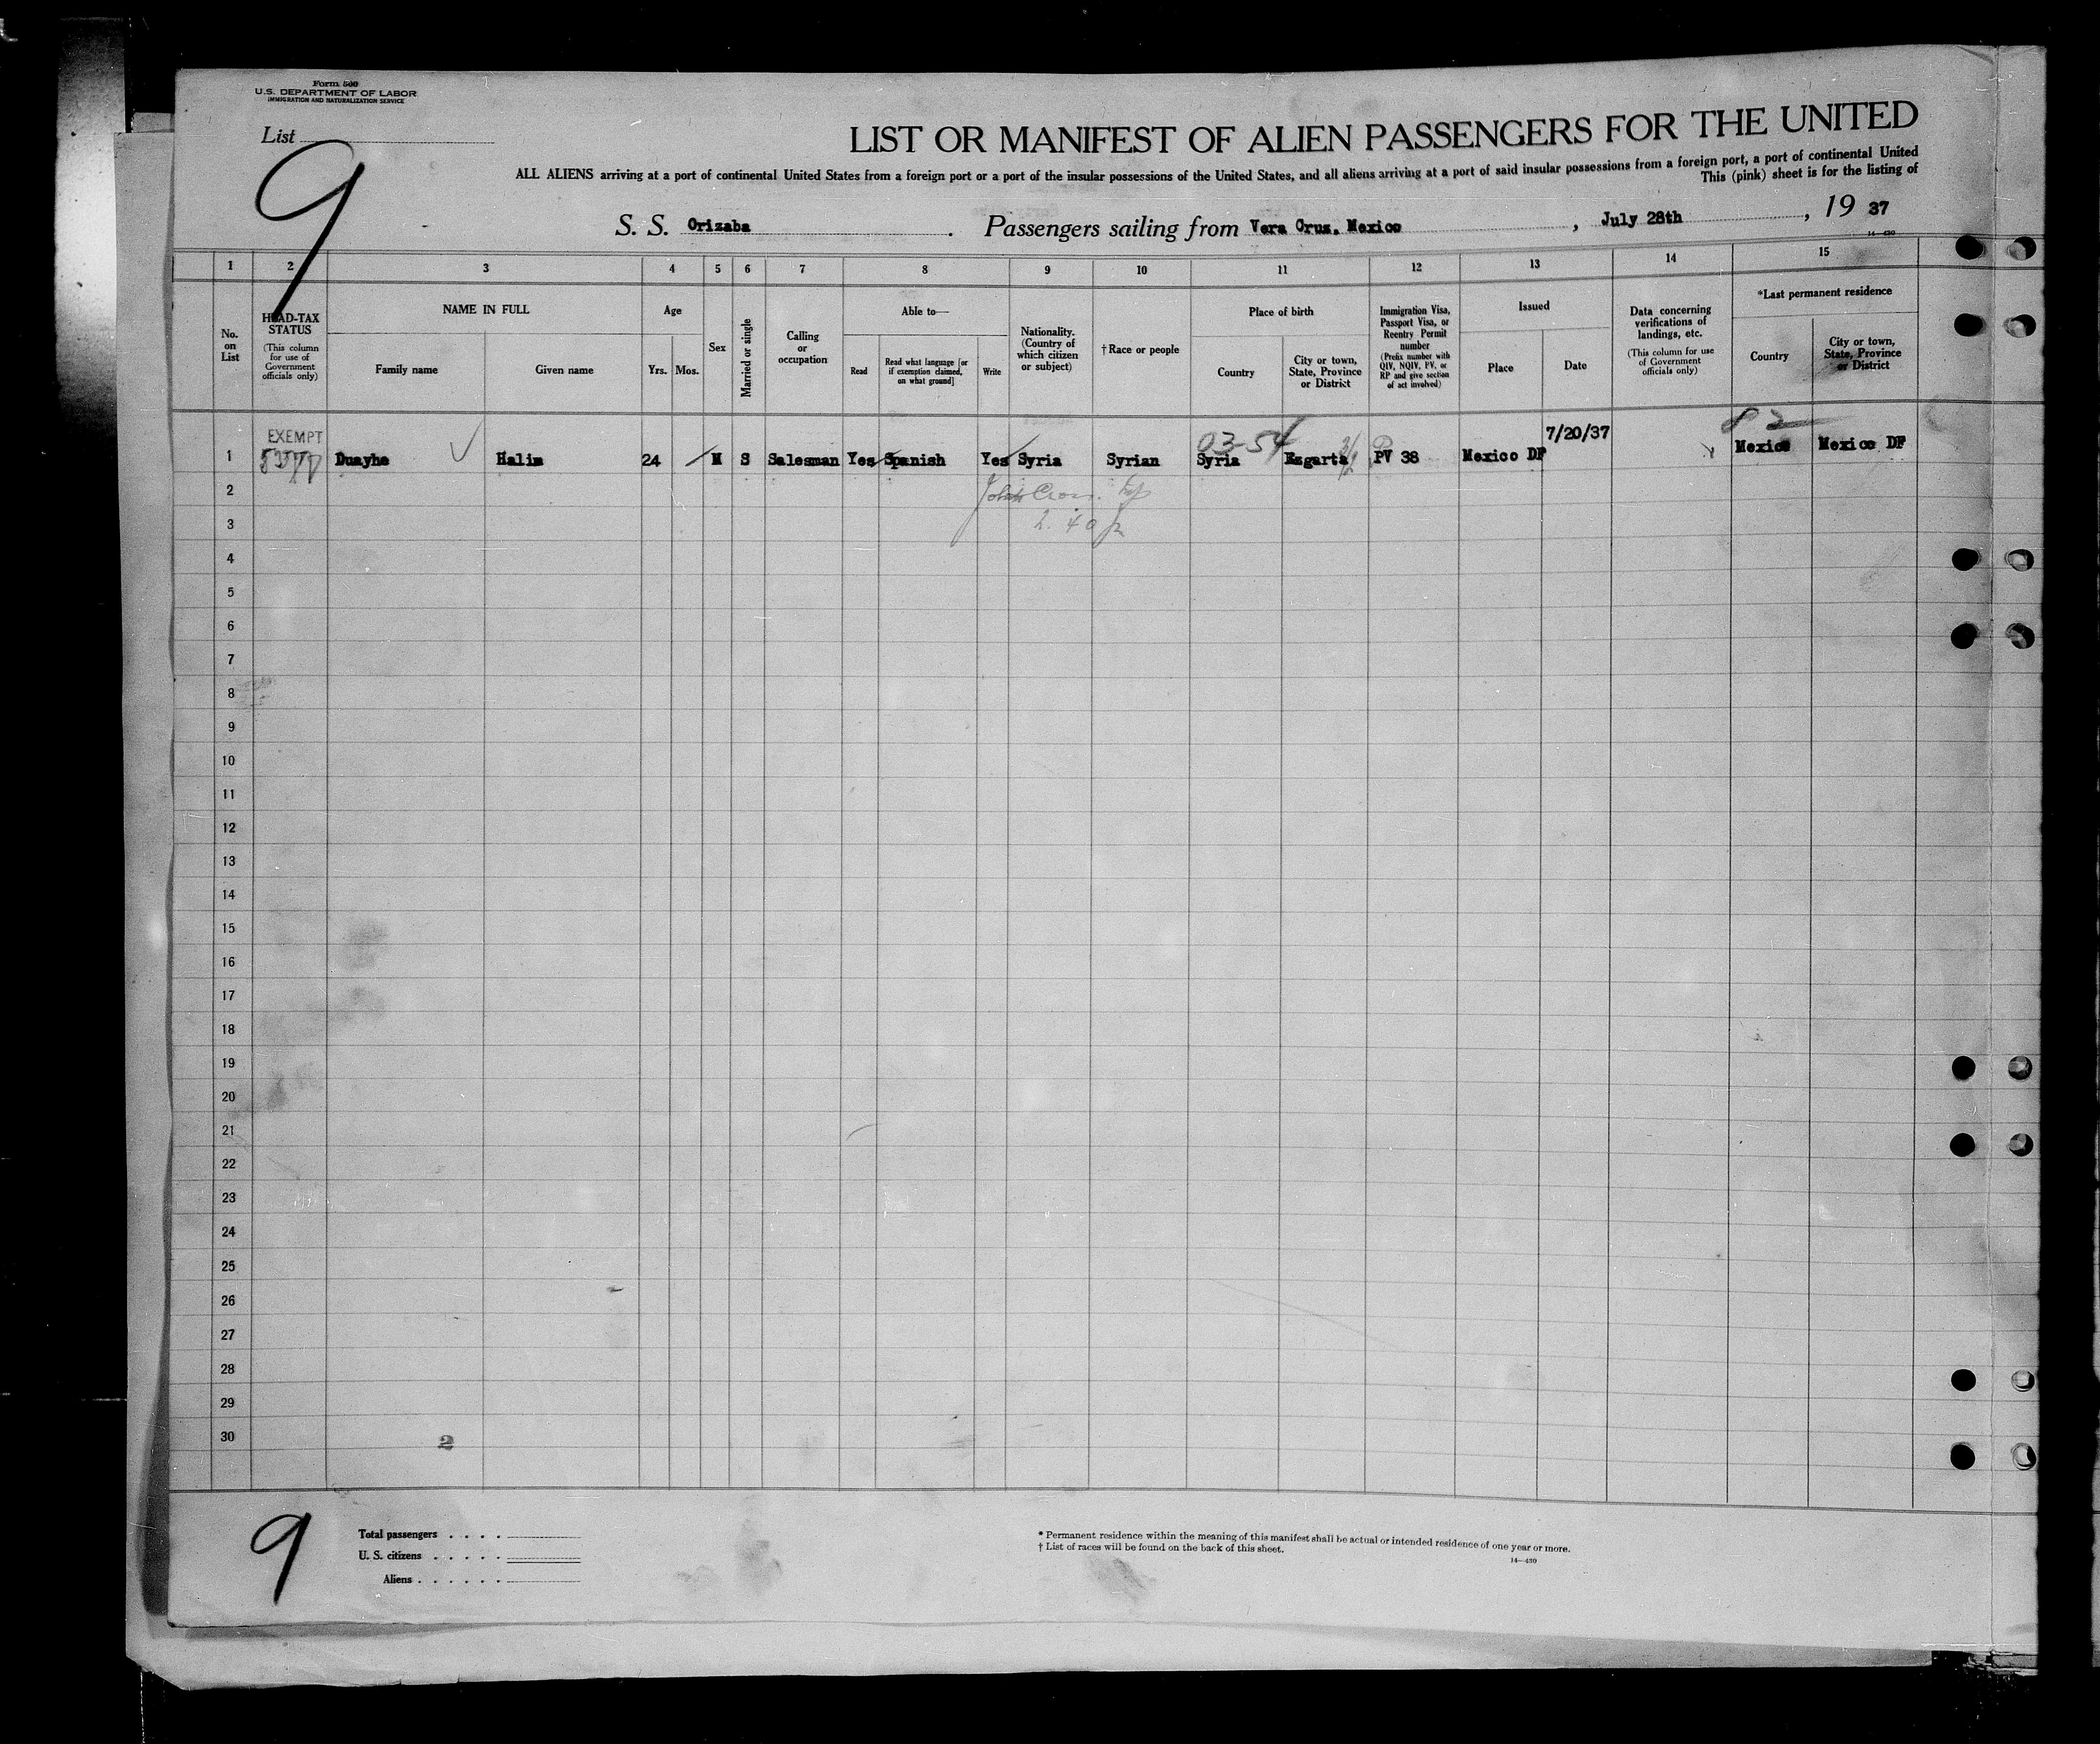 Form 500
U.S. DEPARTMENT OF LABOR
IMMIGRATION AND NATURALIZATION SERVICE
List
9
LIST OR MANIFEST OF ALIEN PASSENGERS FOR THE UNITED
ALL ALIENS arriving at a port of continental United States from a foreign port or a port of the insular possessions of the United States, and all aliens arriving at a port of said insular possessions from a foreign port, a port of continental United
This (pink) sheet is for the listing of
S. S. Orizaba . Passengers sailing from Vera Cruz, Mexico , July 28th , 19 37
14—430
1 2 3 4 5 6 7 8 9 10 11 12 13 14 15
No. on List
HEAD-TAX STATUS (This column for use of Government officials only)
NAME IN FULL
Family name
Given name
Age
Yrs.
Mos.
Sex
Married or single
Calling or occupation
Able to—
Read
Read what language [or if exemption claimed, on what ground]
Write
Nationality. (Country of which citizen or subject)
†Race or people
Place of birth
Country
City or town, State, Province or District
Immigration Visa, Passport Visa, or Reentry Permit number (Prefix number with QIV, NQIV, PV, or RP and give section of act involved)
Issued
Place
Date
Data concerning verifications of landings, etc. (This column for use of Government officials only)
*Last permanent residence
Country
City or town, State, Province or District
EXEMPT
03-54
7/20/37
1 Duayhe Halim 24 M S Salesman Yes Spanish Yes Syria Syrian Syria Ezgarta PV 38 Mexico DF Mexico Mexico DF
2
3
4
5
6
7
8
9
10
11
12
13
14
15
16
17
18
19
20
21
22
23
24
25
26
27
28
29
30
2
9
Total passengers . . . .
U. S. citizens . . . . .
Aliens . . . . . .
* Permanent residence within the meaning of this manifest shall be actual or intended residence of one year or more.
† List of races will be found on the back of this sheet.
14—430